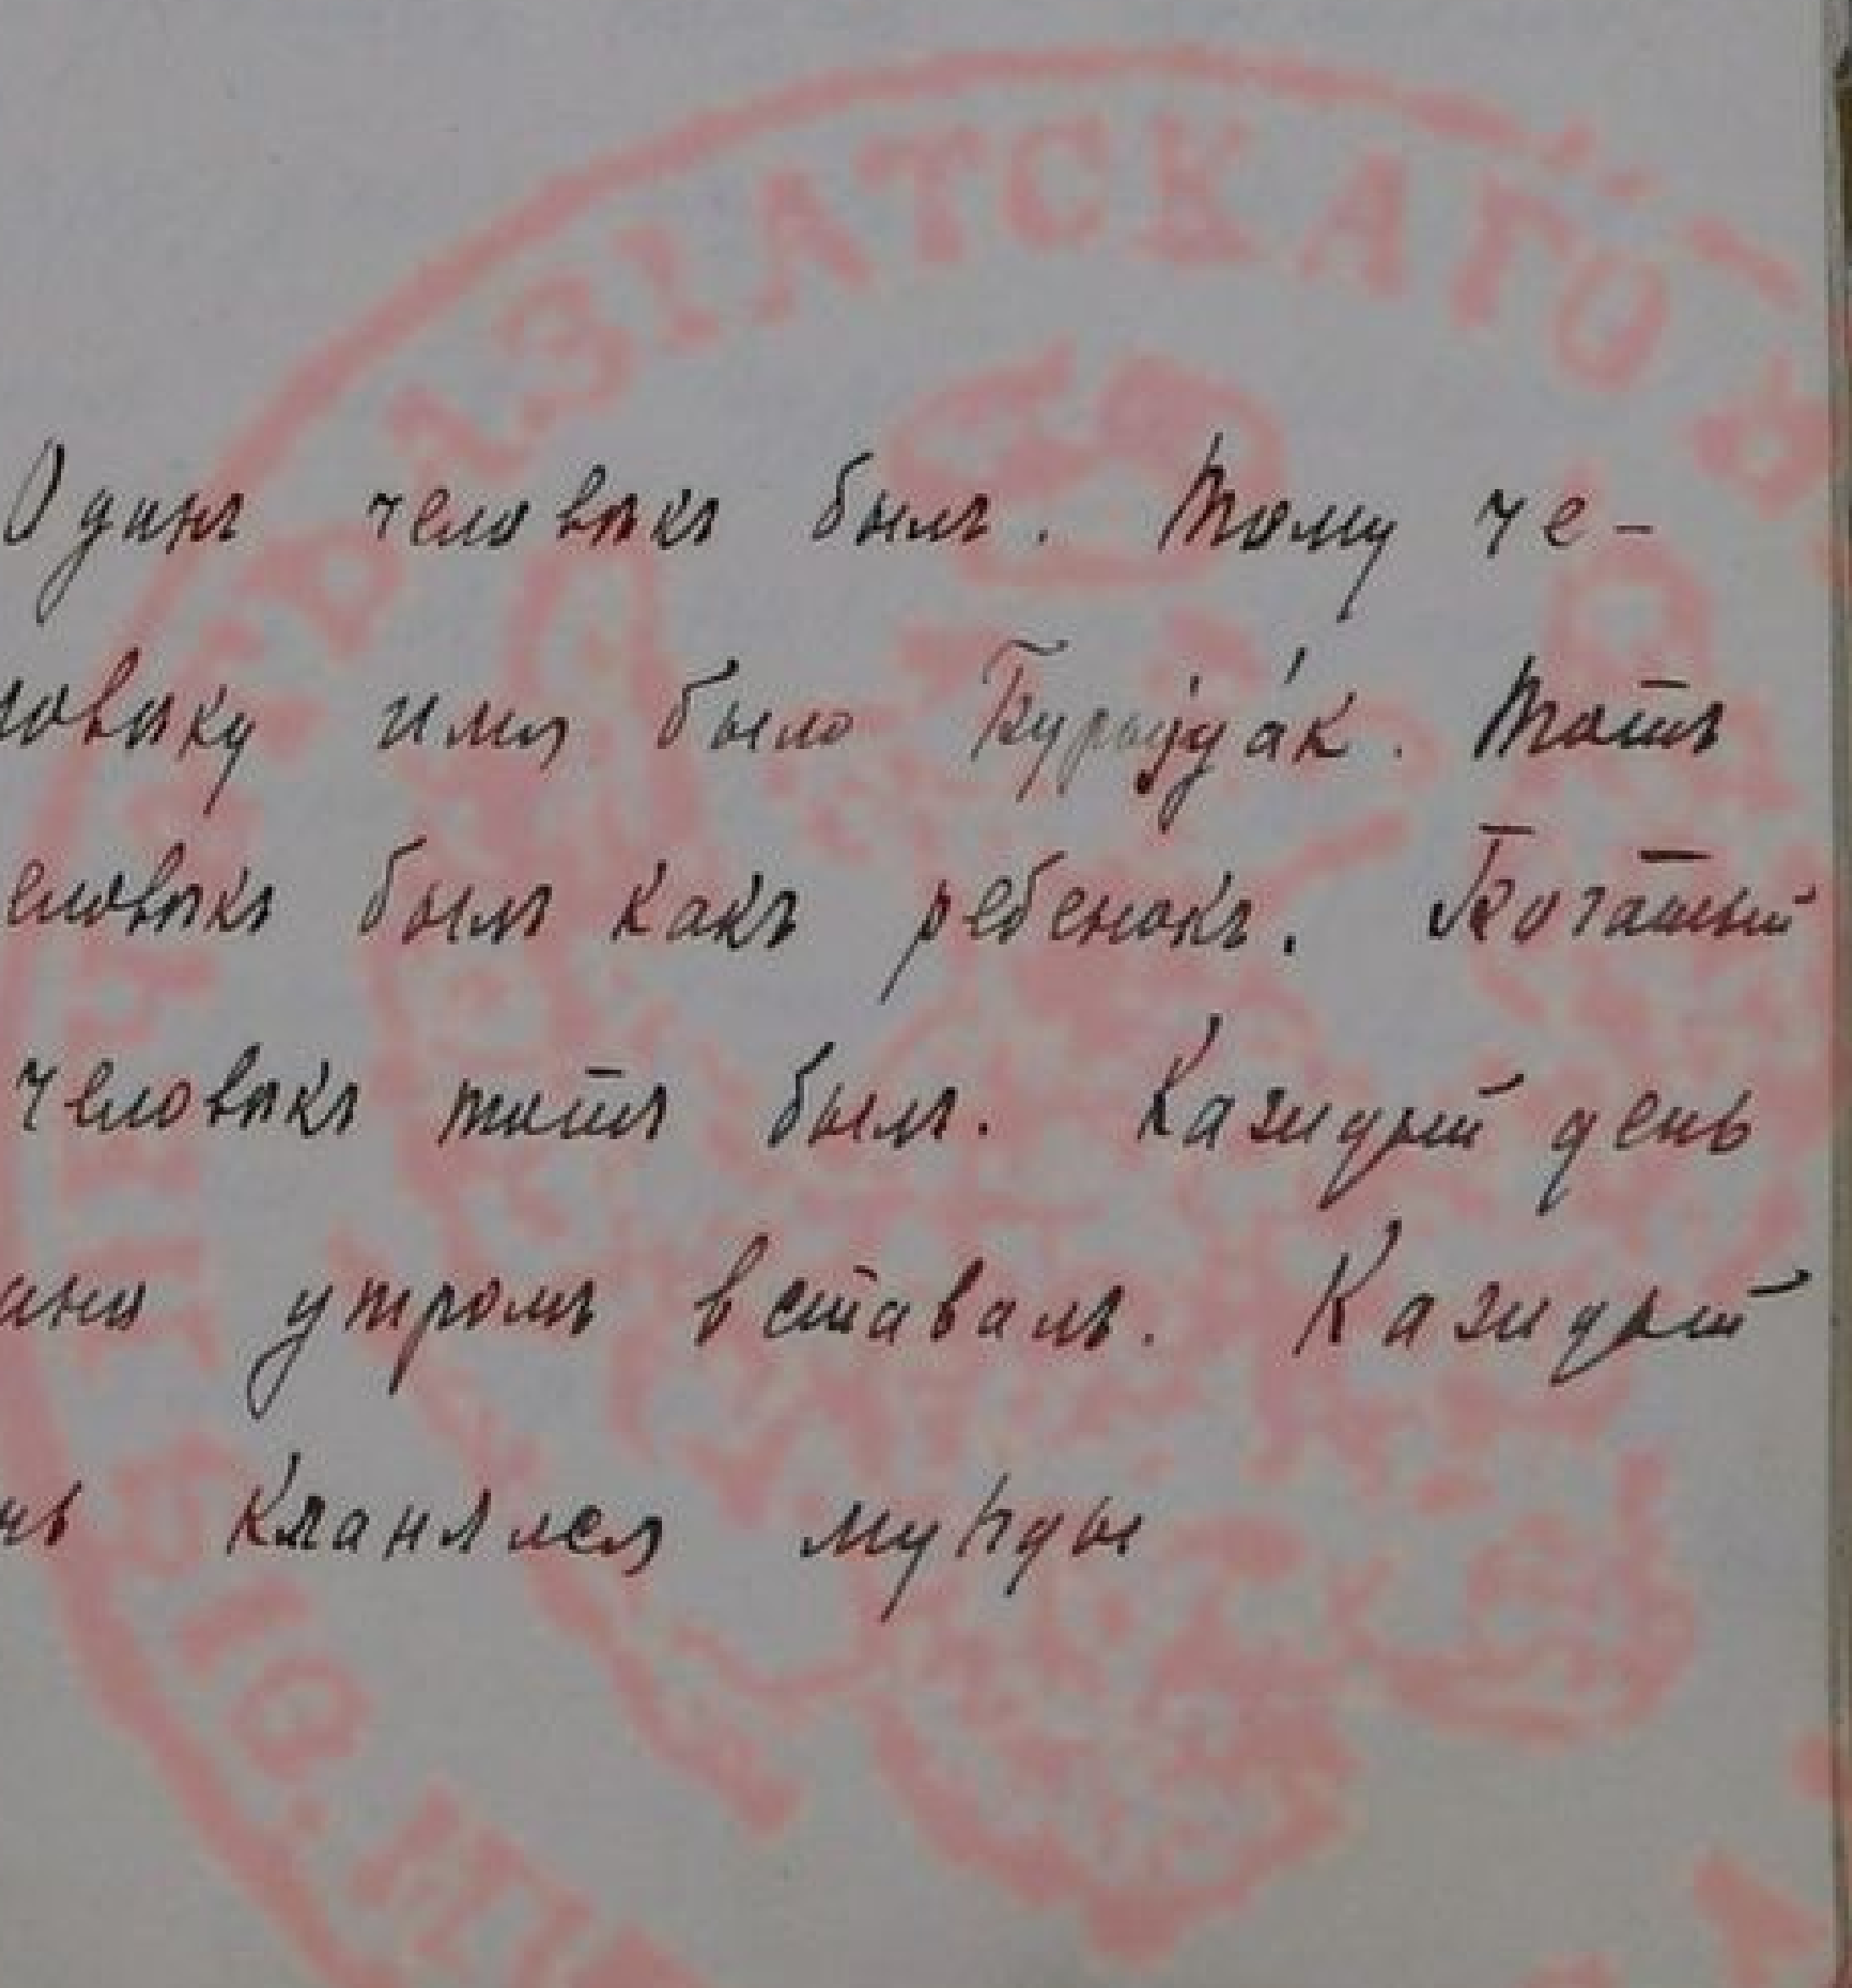 АЗІАТСКАГО
Одинъ человѣкъ былъ. Тому че-
ловѣку имя было Бурыјда́к. Тотъ
еловѣкъ былъ какъ ребенокъ. Богатый
человѣкъ тотъ былъ. Каждый день
ано утромъ вставалъ. Каждый
нь кланялся муһды